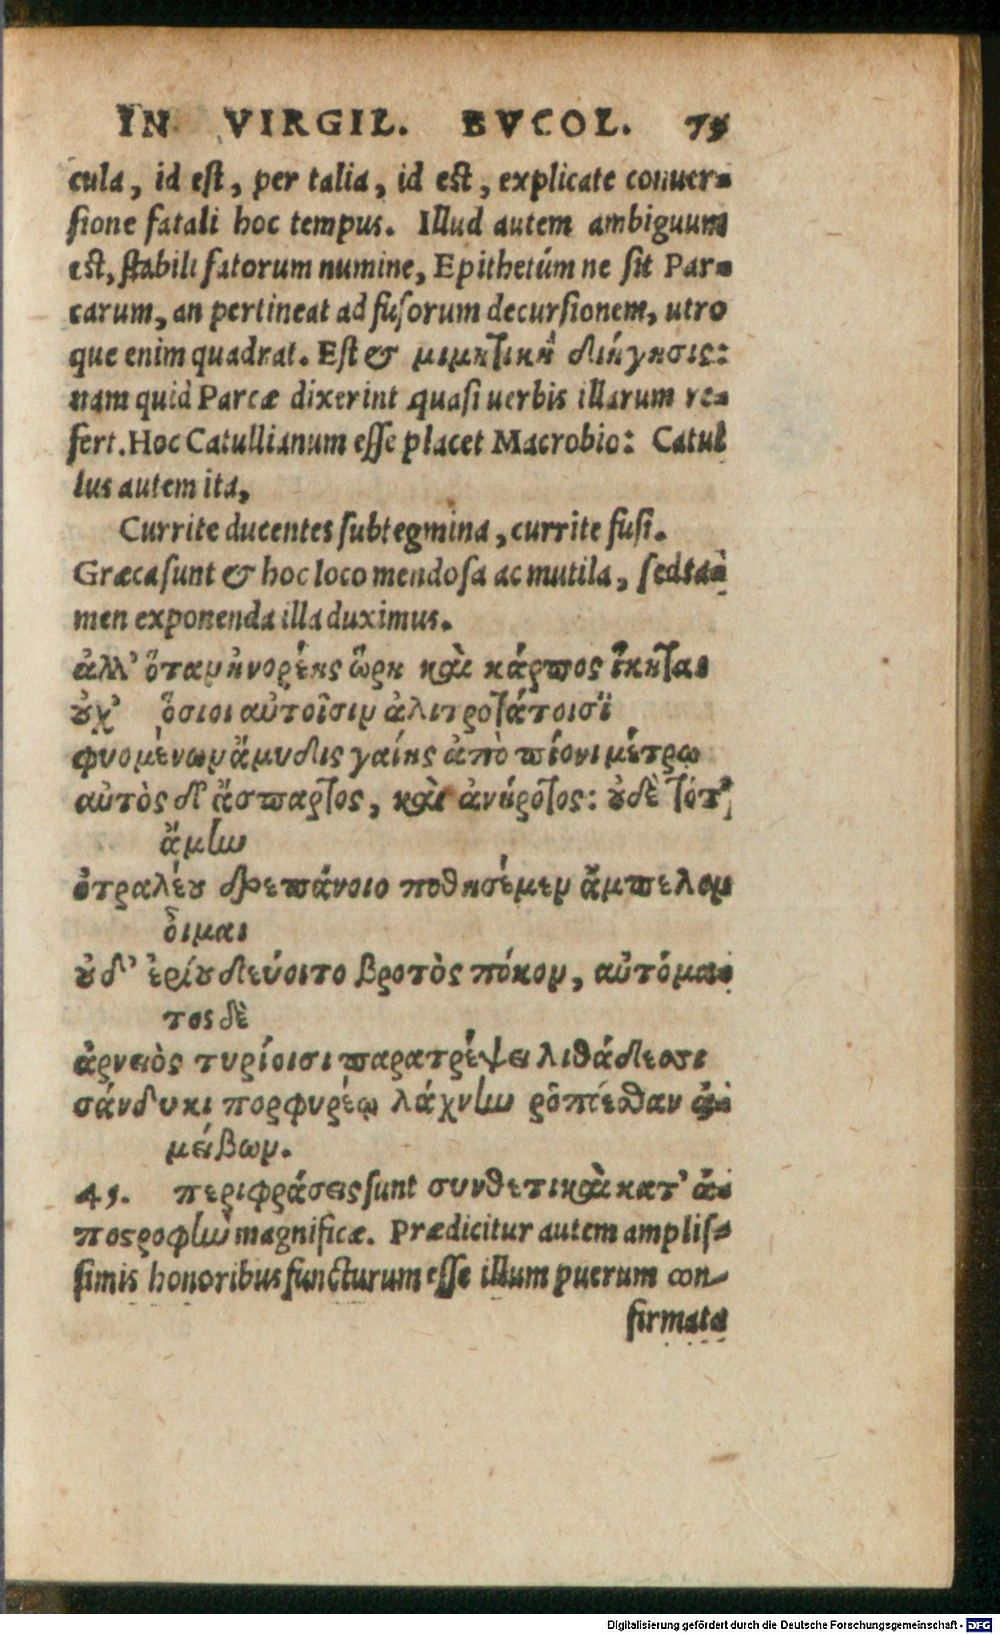 IN VIRGIL. BVCOL. 75
cula, id est, per talia, id est, explicate conuer-
sione fatali hoc tempus. Illud autem ambiguum
est, stabili fatorum numine, Epithetúm ne sit Par-
carum, an pertineat ad fusorum decursionem, utro
que enim quadrat. Est & μιμητικὴ διήγησις:
nam quid Parcæ dixerint quasi uerbis illarum re-
fert. Hoc Catullianum esse placet Macrobio: Catul
lus autem ita,
Currite ducentes subtegmina, currite fusi.
Græca sunt & hoc loco mendosa ac mutila, sed ta-
men exponenda illa duximus.
ἀλλ' ὅταν ἠνορέης ὥρη καὶ κάρπος ἵκηται
οὐχ' ὅσιοι αὐτοῖσιν ἀλιτροτάτοισϊ
φυομένων ἄμυδις γαίης ἀπὸ πίονι μέτρῳ
αὐτὸς δ' ἄσπαρτος, καὶ ἀνήροτος: οὐδὲ τότ'
ἄμην
ὀτραλέου δρεπάνοιο ποθησέμεν ἄμπελον
ὄιμαι
οὐδ' ἐρίου δεύοιτο βροτὸς πόκον, αὐτόμα-
τος δὲ
ἀρνειὸς τυρίοισι παρατρέψει λιθάδεσσι
σάνδυκι πορφυρέῳ λάχνην
μείβων.
45. περιφράσεις sunt συνθετικαὶ κατ' ἀ-
ποστροφὴν magnificæ. Prædicitur autem amplis-
simis honoribus functurum esse illum puerum con-
firmata
Digitalisierung gefördert durch die Deutsche Forschungsgemeinschaft - DFG